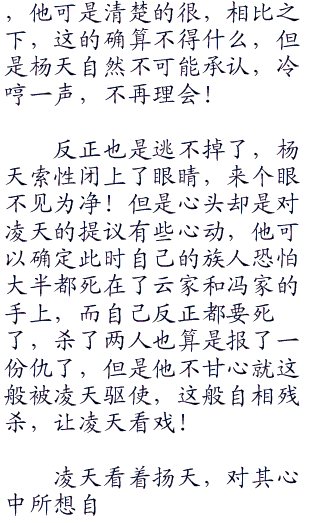 ，他可是清楚的很，相比之
下，这的确算不得什么，但
是杨天自然不可能承认，冷
哼一声，不再理会！
反正也是逃不掉了，杨
天索性闭上了眼睛，来个眼
不见为净！但是心头却是对
凌天的提议有些心动，他可
以确定此时自己的族人恐怕
大半都死在了云家和冯家的
手上，而自己反正都要死
了，杀了两人也算是报了一
份仇了，但是他不甘心就这
般被凌天驱使，这般自相残
杀，让凌天看戏！
凌天看着扬天，对其心
中所想自